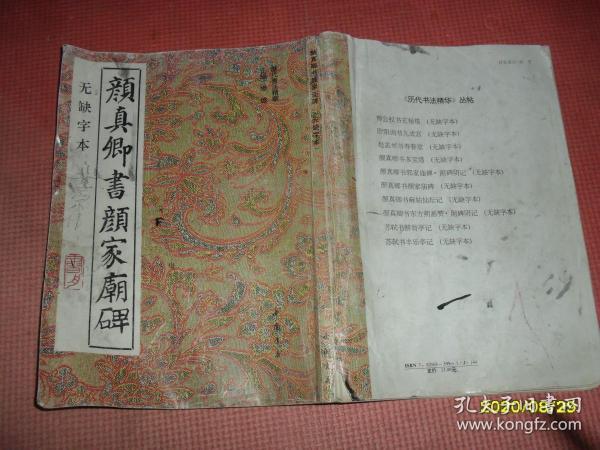 顔真卿書顔家廟碑
无缺字本
《历代书法精华》丛帖
柳公权书玄秘塔 (无缺字本)
欧阳询书九成宫 (无缺字本)
赵孟頫书寿春堂 (无缺字本)
颜真卿书多宝塔 (无缺字本)
颜真卿书郭家庙碑·附碑阴记 (无缺字本)
颜真卿书颜家庙碑 (无缺字本)
颜真卿书麻姑仙坛记 (无缺字本)
颜真卿书东方朔画赞·附碑阴记 (无缺字本)
苏轼书醉翁亭记 (无缺字本)
苏轼书丰乐亭记 (无缺字本)
ISBN 7
定价
2020/08/29
孔夫子旧书网
www.kongfz.com